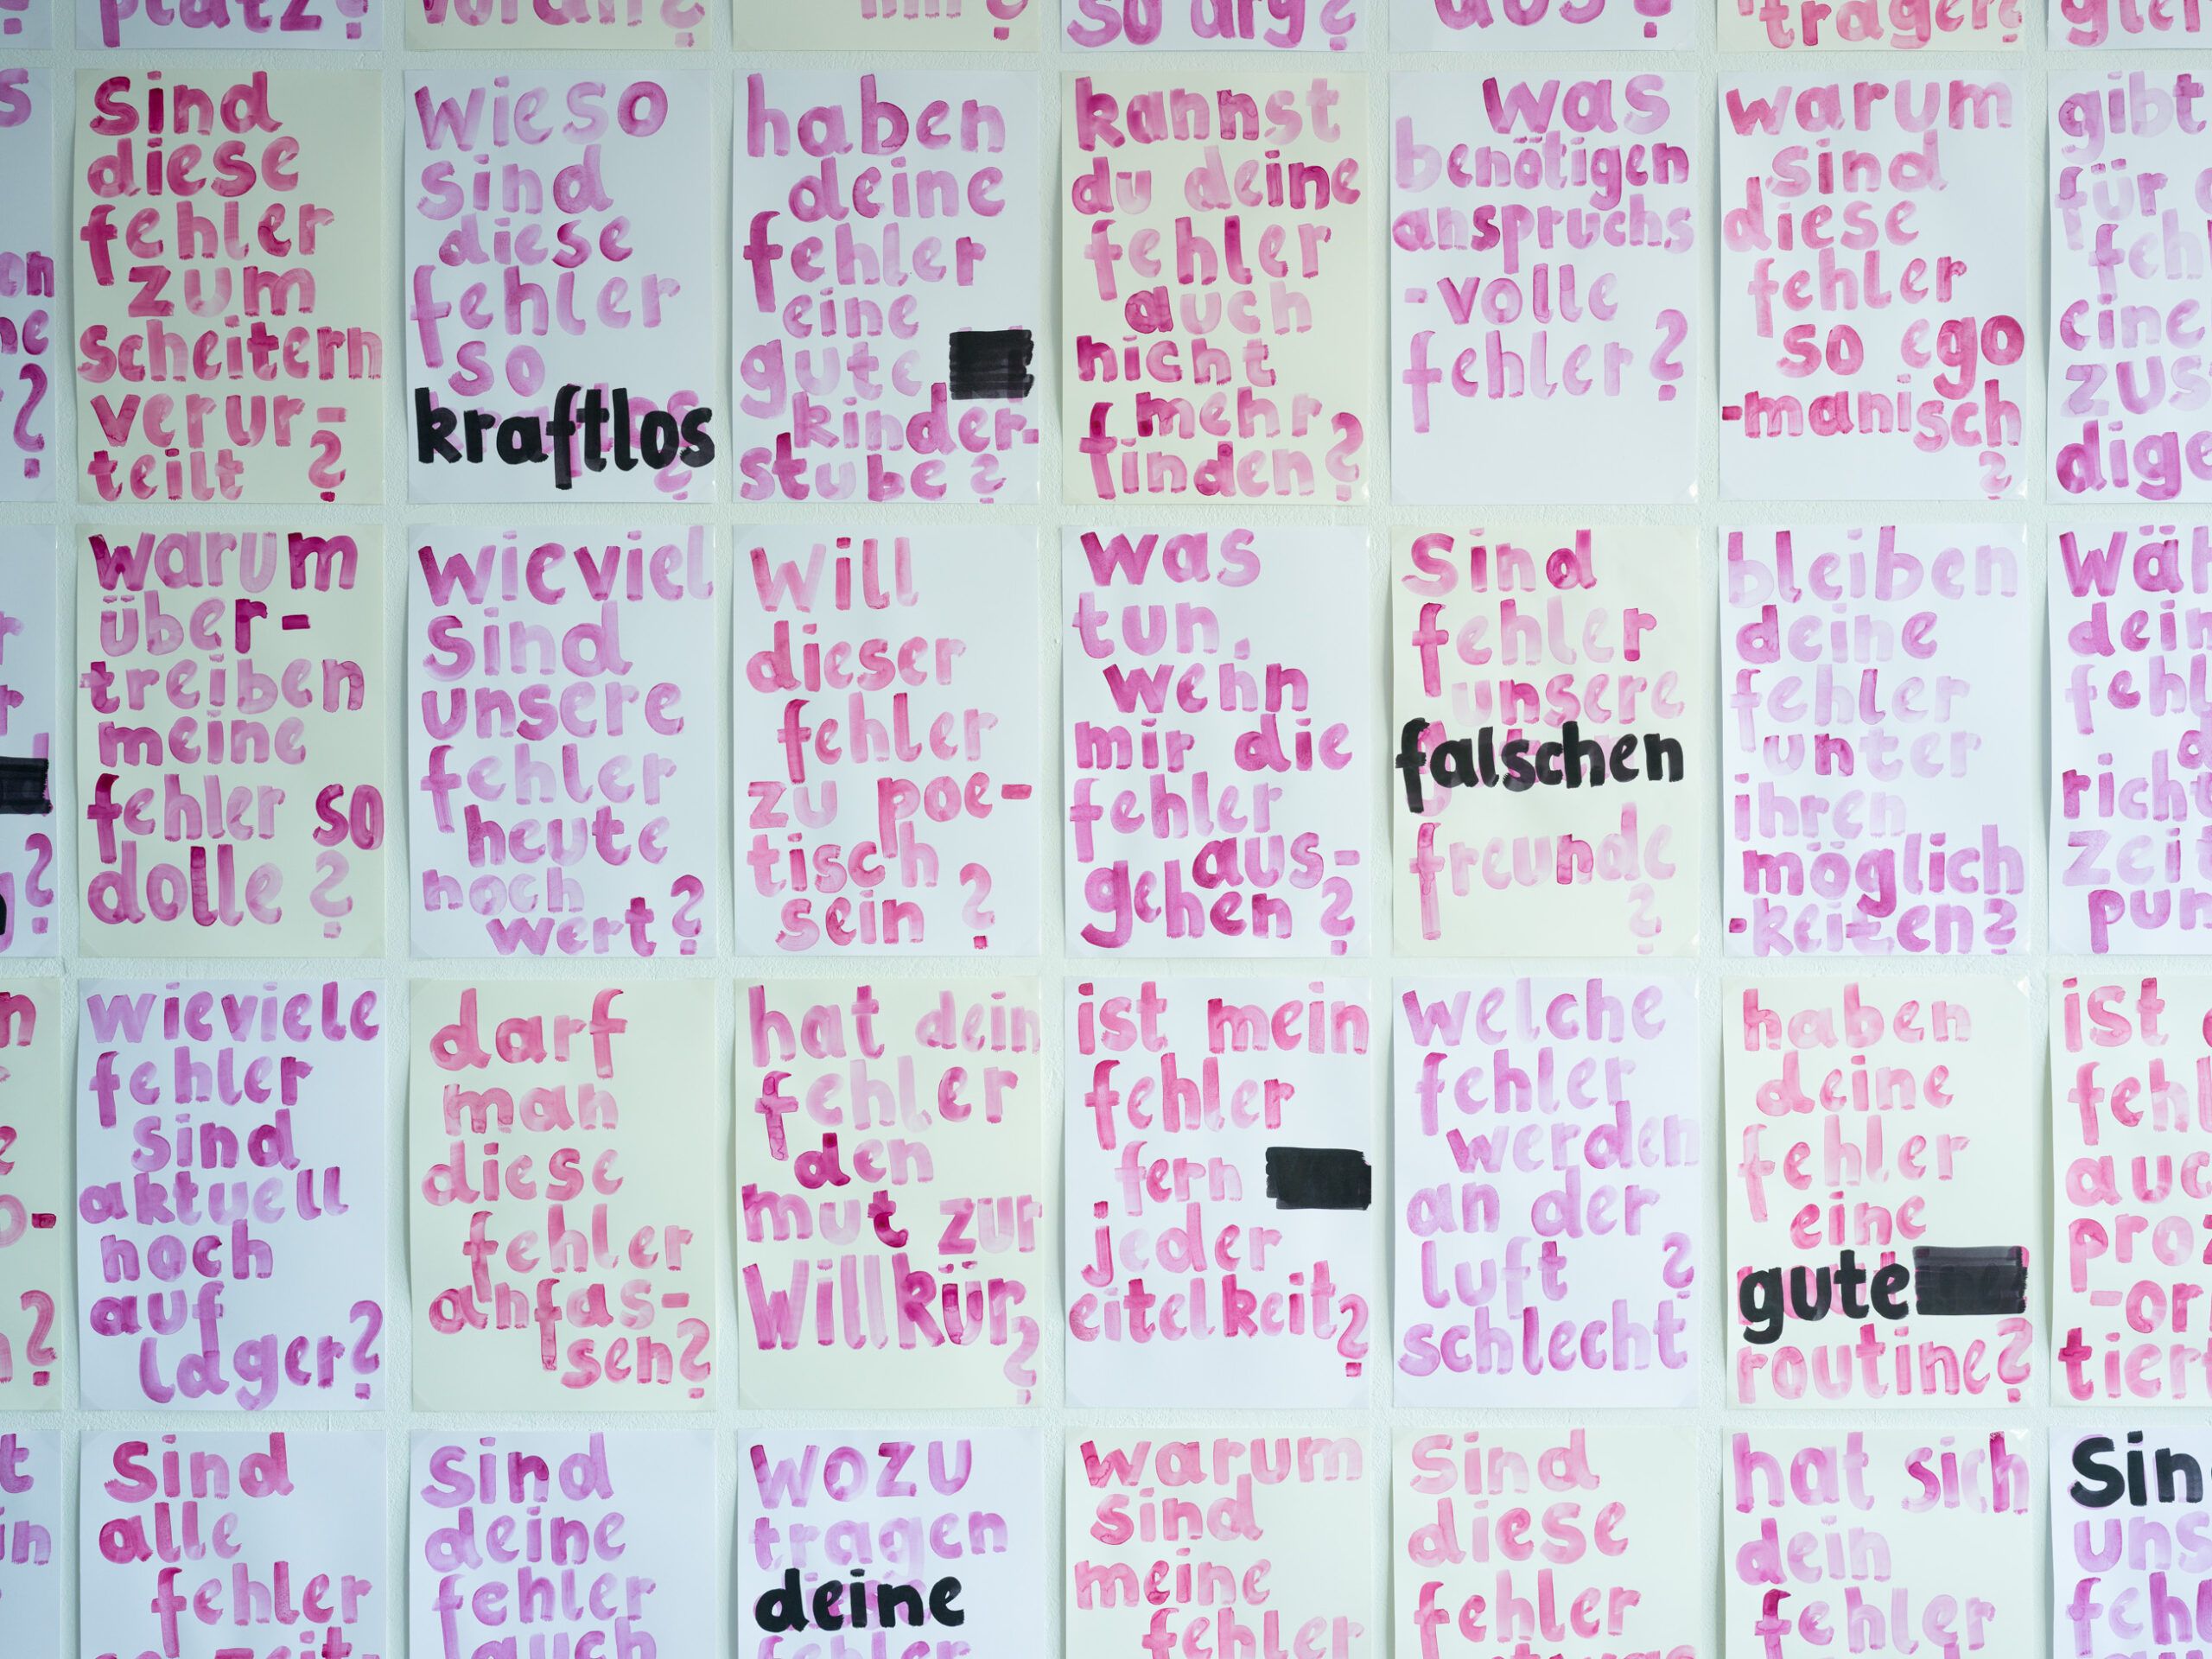 platz?
so arg?
träger?
sind
diese
fehler
zum
scheitern
verur-
teilt ?
wieso
sind
diese
fehler
so
kraftlos
?
haben
deine
fehler
eine
gute
kinder-
stube?
kannst
du deine
fehler
auch
nicht
mehr
finden?
was
benötigen
anspruchs
-volle
fehler?
warum
sind
diese
fehler
so ego
-manisch
?
gibt
für
eine
warum
über-
treiben
meine
fehler so
dolle ?
wieviel
sind
unsere
fehler
heute
noch
wert?
will
dieser
fehler
zu poe-
tisch
sein ?
was
tun,
wenn
mir die
fehler
aus-
gehen?
sind
fehler
unsere
falschen
freunde
?
bleiben
deine
fehler
unter
ihren
möglich
-keiten?
wieviele
fehler
sind
aktuell
noch
auf
lager?
darf
man
diese
fehler
anfas-
sen?
hat dein
fehler
den
mut zur
willkür
?
ist mein
fehler
fern
jeder
eitelkeit?
welche
fehler
werden
an der
luft ?
schlecht
haben
deine
fehler
eine
gute
routine?
ist
sind
alle
fehler
sind
deine
fehler
auch
wozu
tragen
deine
fehler
warum
sind
meine
fehler
sind
diese
fehler
etwas
hat sich
dein
fehler